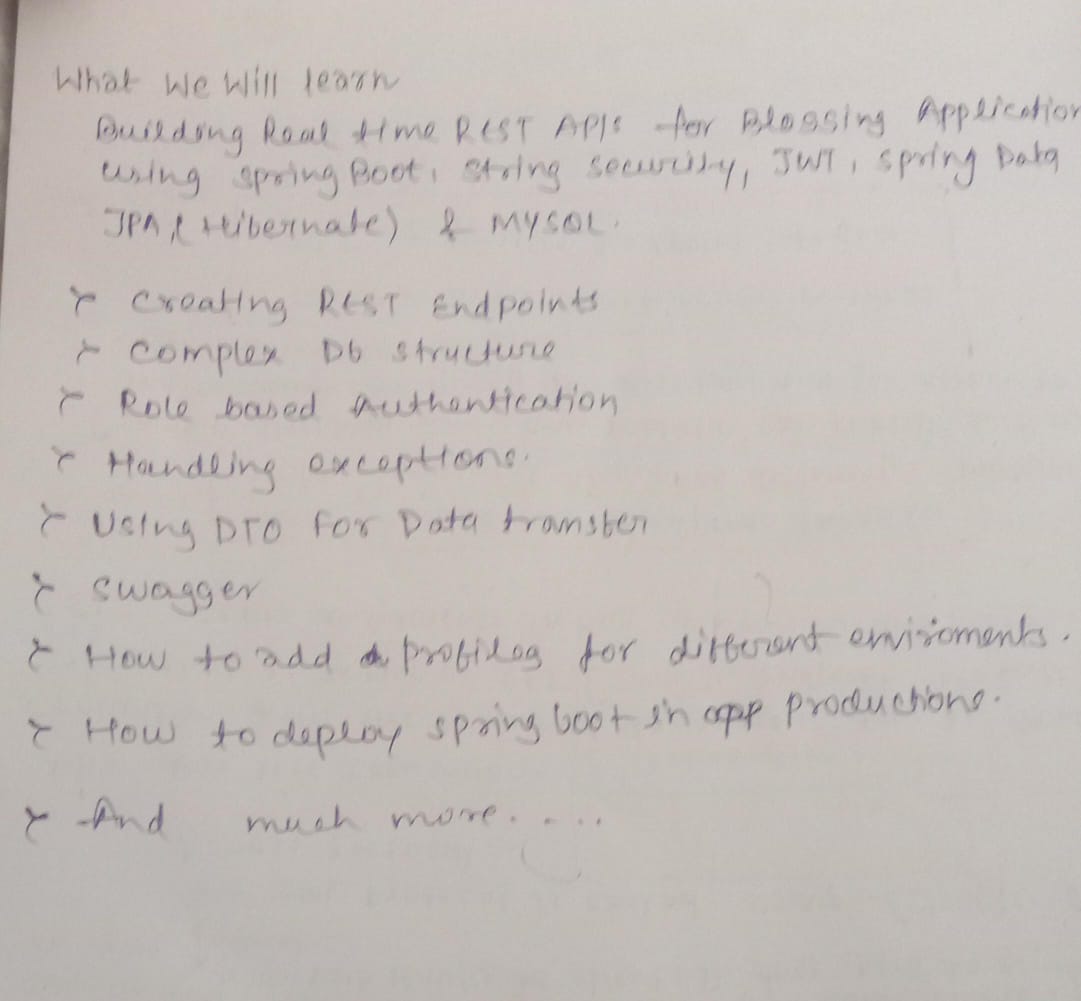 What We Will learn
Building Real time REST APIs for Blogging Application
using spring Boot, String Security, JWT, spring Data
JPA (Hibernate) & MYSQL.
Creating REST Endpoints
Complex Db structure
Role based Authentication
Handling exceptions.
Using DTO For Data transfer
Swagger
How to add profiles for different enviroments.
How to deploy spring boot in app productions.
And much more.....